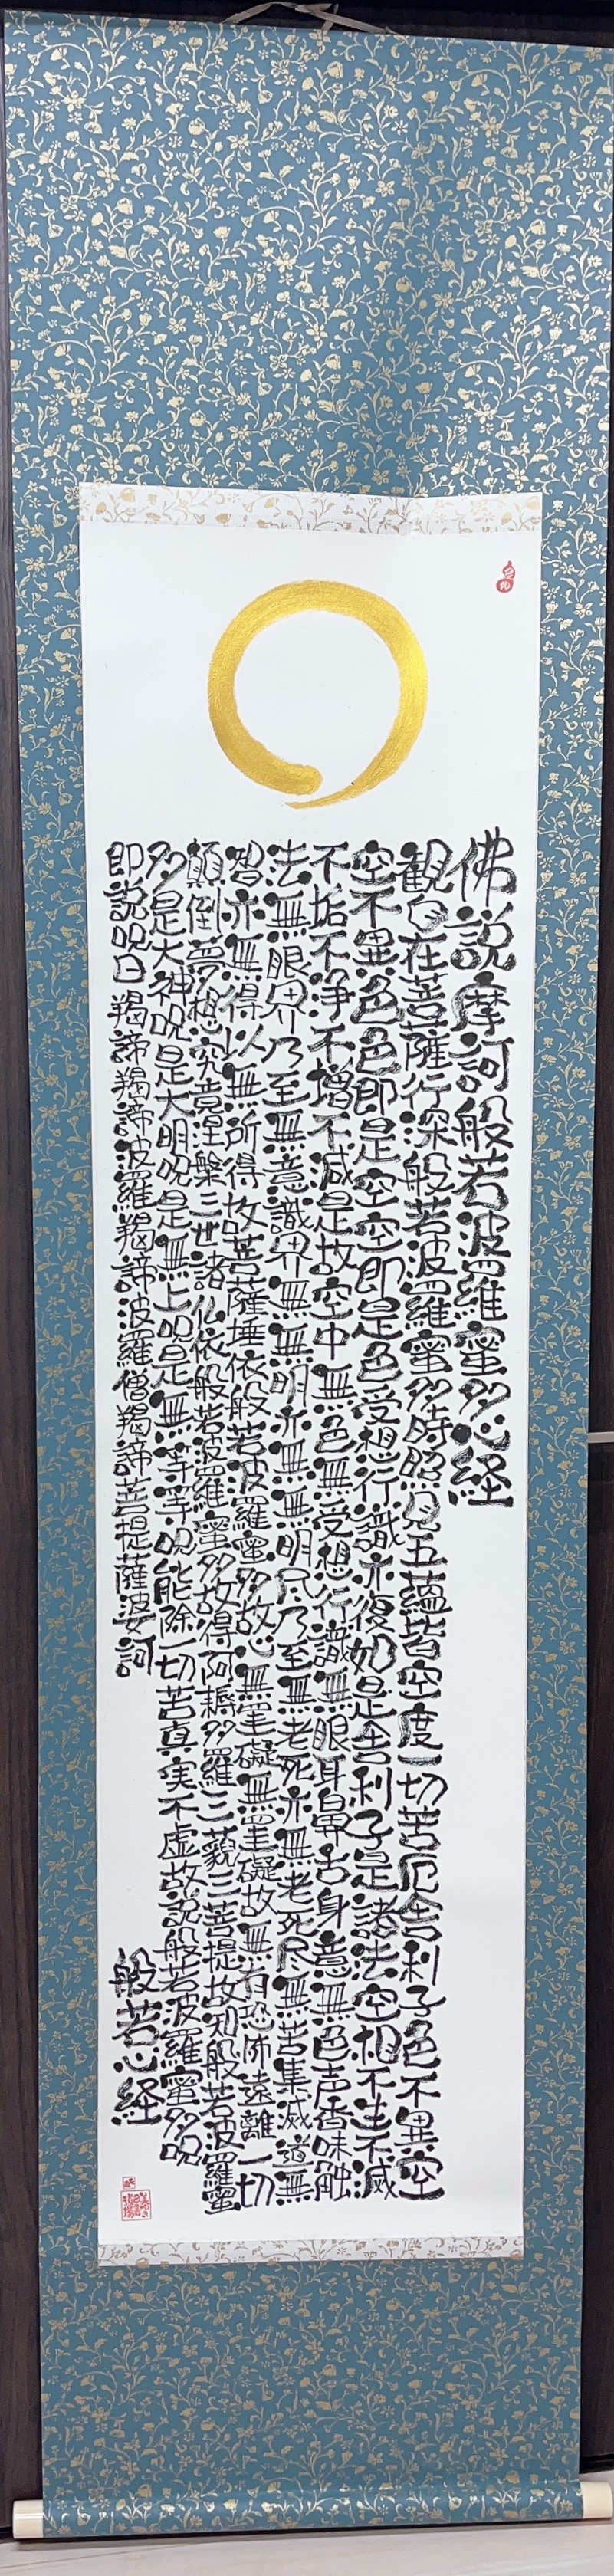 佛説摩訶般若波羅蜜多心経
観自在菩薩行深般若波羅蜜多時照見五蘊皆空度一切苦厄舎利子色不異空
空不異色色即是空空即是色受想行識亦復如是舎利子是諸法空相不生不滅
不垢不浄不増不減是故空中無色無受想行識無眼耳鼻舌身意無色声香味触
法無眼界乃至無意識界無無明亦無無明尽乃至無老死亦無老死尽無苦集滅道無
智亦無得以無所得故菩薩埵依般若波羅蜜多故心無罣礙無罣礙故無有恐怖遠離一切
顛倒夢想究竟涅槃三世諸仏依般若波羅蜜多故得阿耨多羅三藐三菩提故知般若波羅蜜
多是大神呪是大明呪是無上呪是無等等呪能除一切苦真実不虚故説般若波羅蜜多呪
即説呪曰 羯諦羯諦波羅羯諦波羅僧羯諦菩提薩婆訶
般若心経